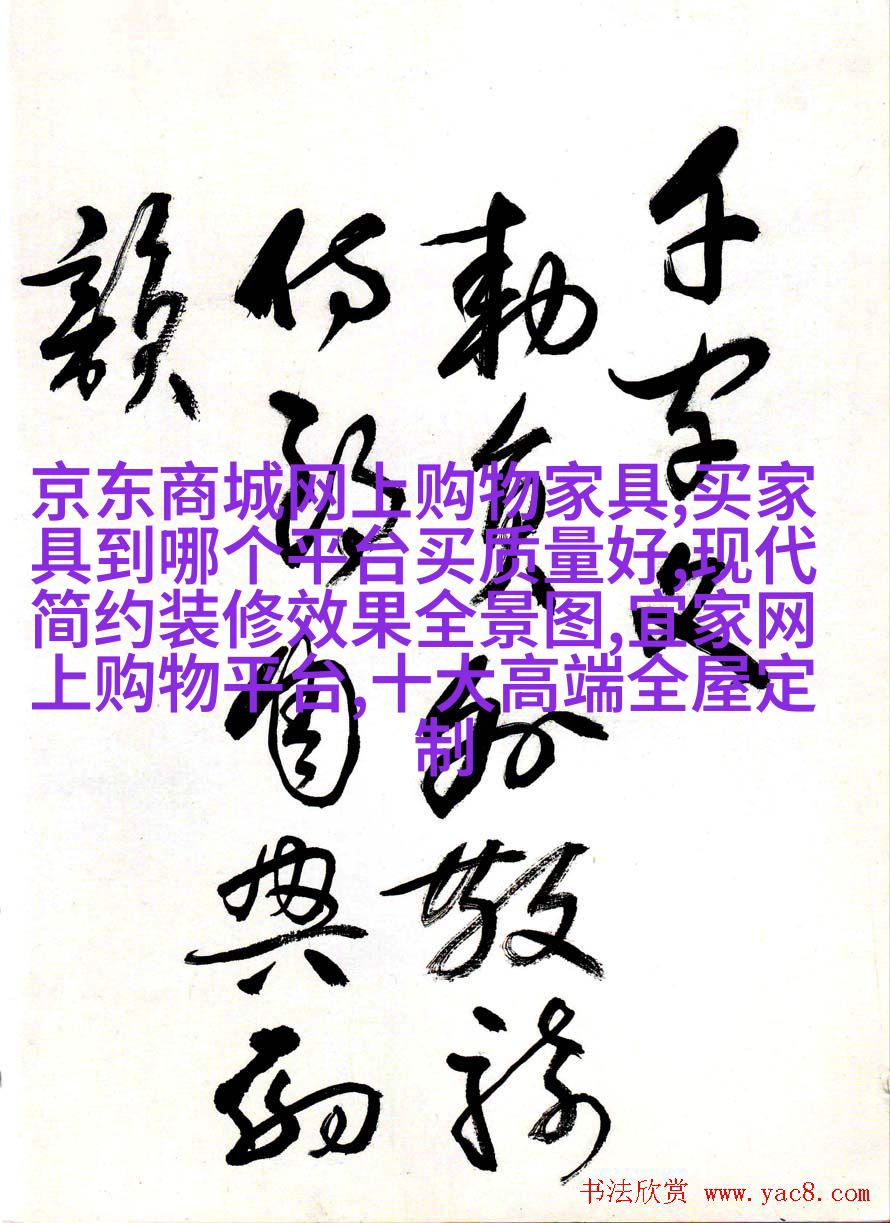 千字文
勅員外散騎
侍郎周興嗣
韻
京东商城网上购物家具,买家
具到哪个平台买质量好,现代
简约装修效果全景图,宜家网
上购物平台,十大高端全屋定
制
书法欣赏 www.yac8.com